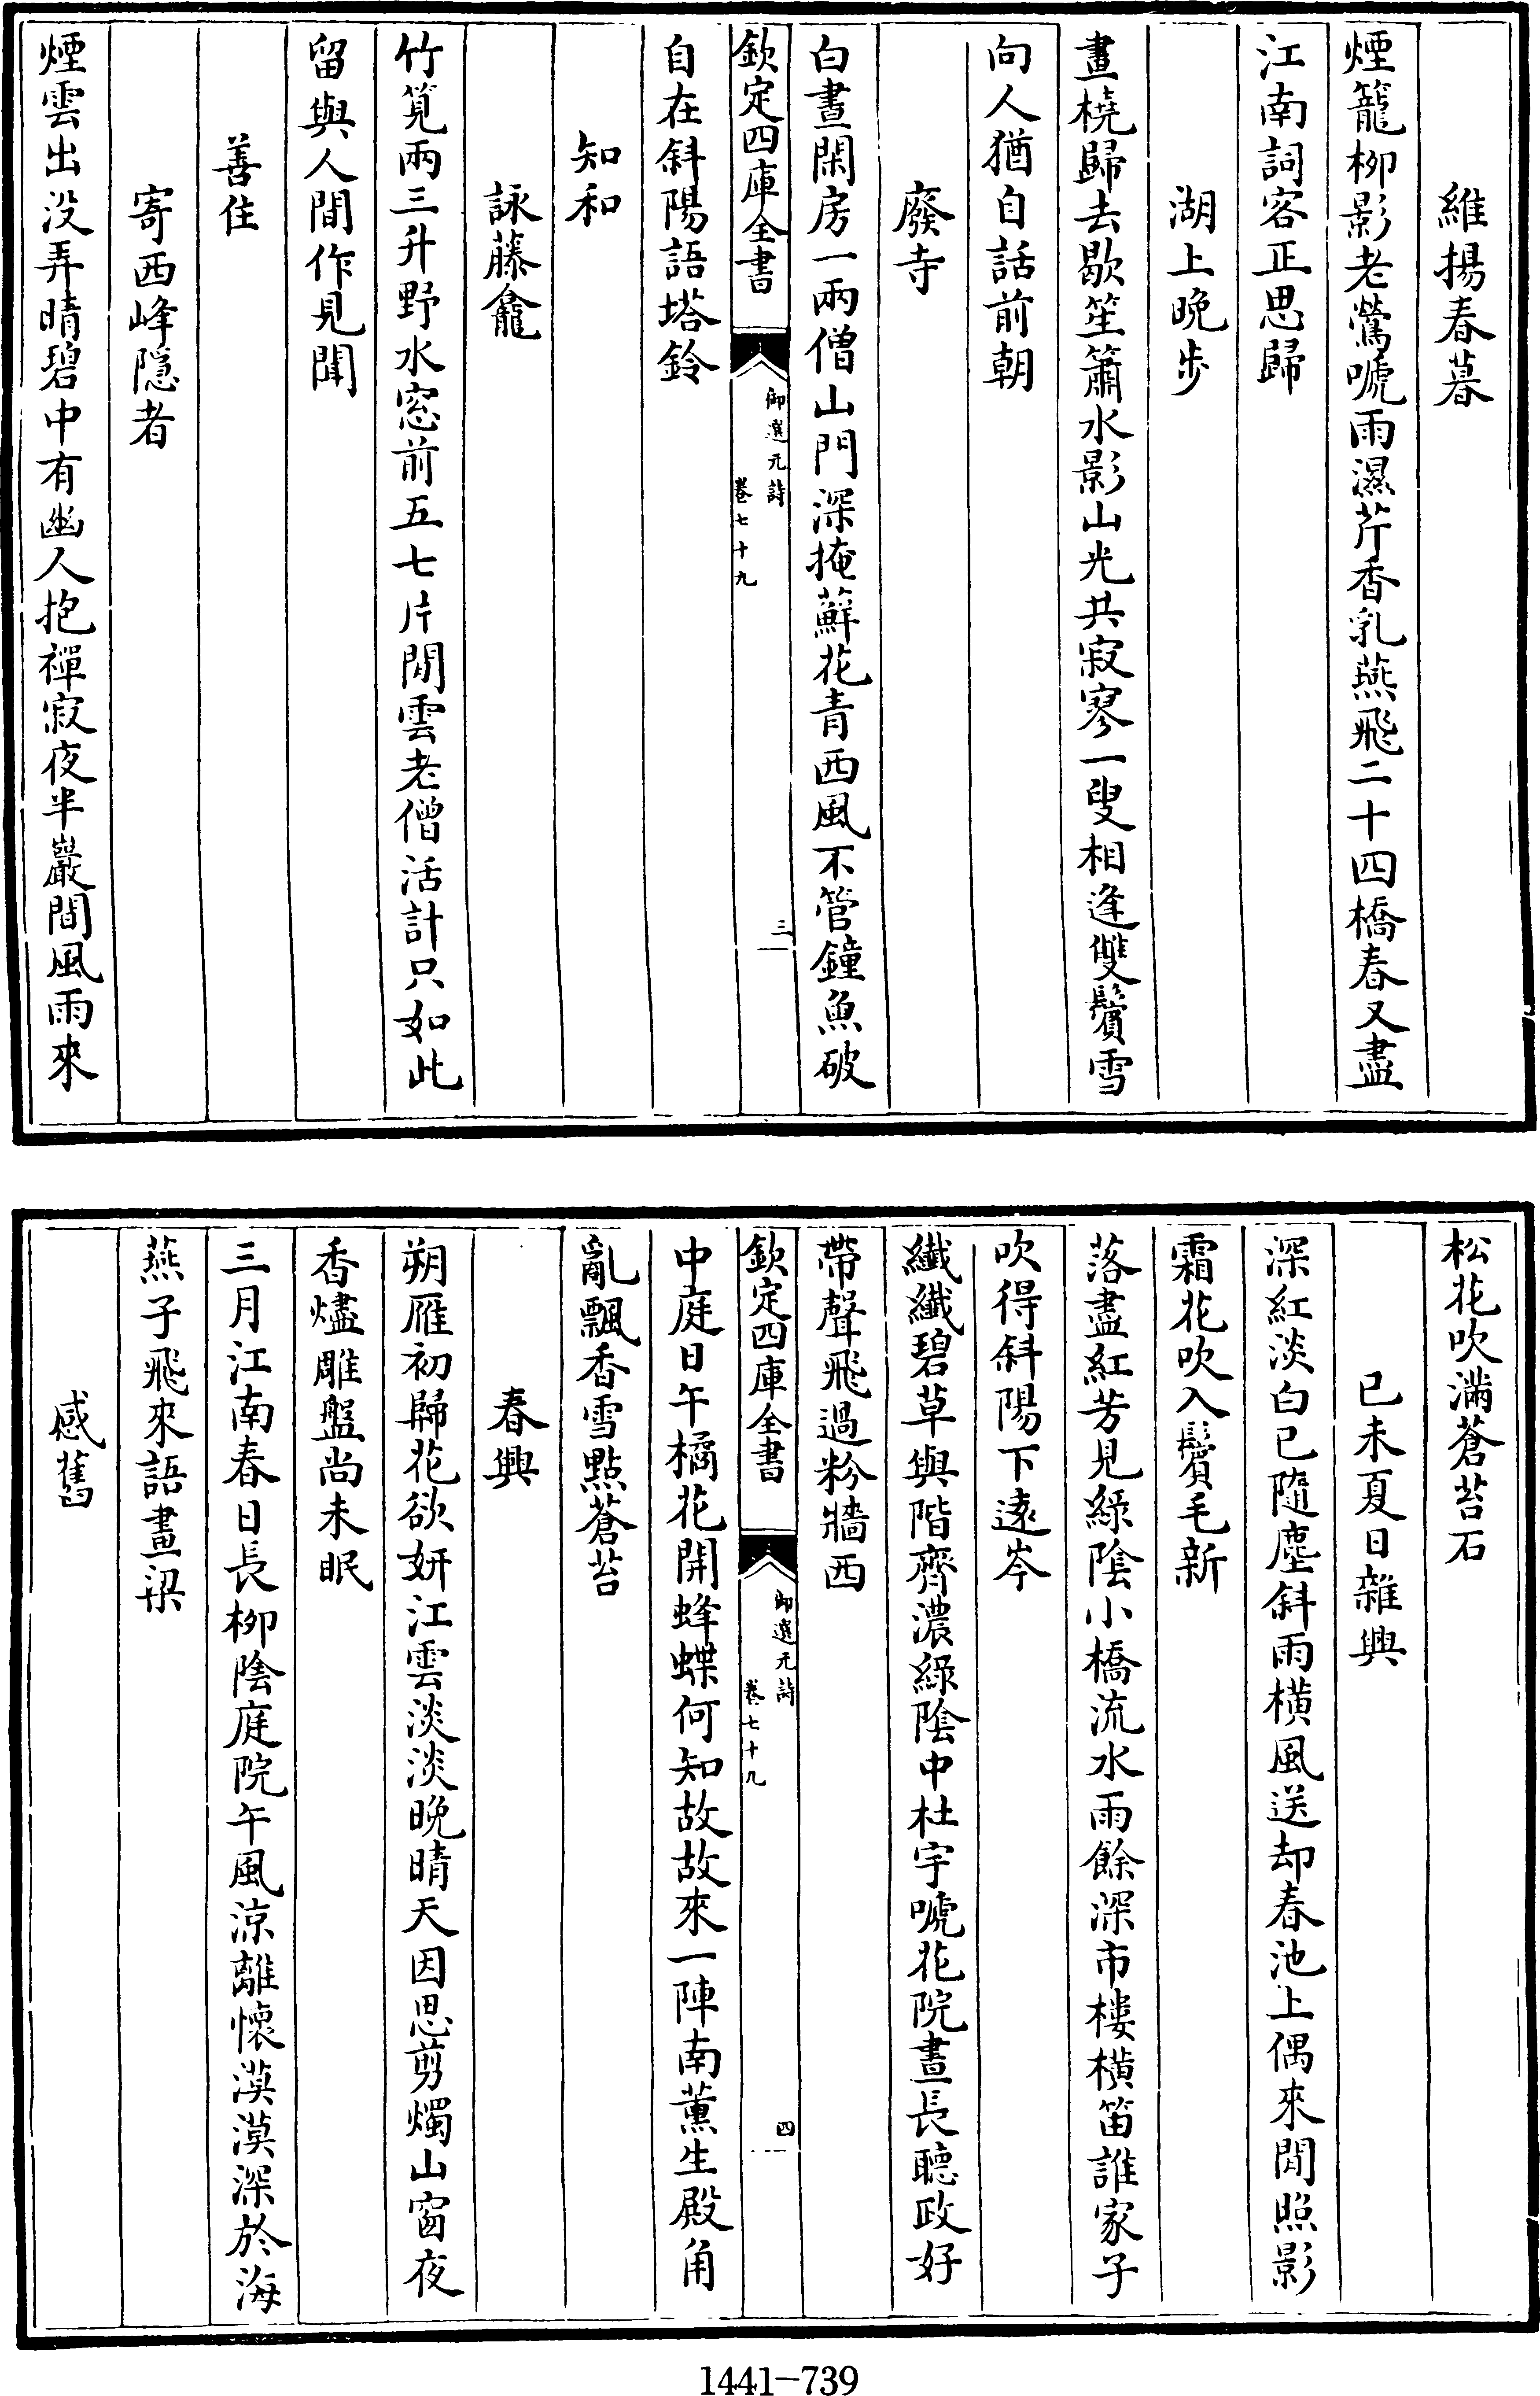 維揚春暮
煙籠柳影老鶯嗁雨濕芹香乳燕飛二十四橋春又盡
江南詞客正思歸
湖上晚步
畫橈歸去歇笙簫水影山光共寂寥一叟相逢雙鬢雪
向人猶自話前朝
廢寺
白晝閑房一兩僧山門深掩蘚花青西風不管鐘魚破
欽定四庫全書
御選元詩
卷七十九
三
自在斜陽語塔鈴
知和
詠藤龕
竹筧兩三升野水窓前五七片閒雲老僧活計只如此
留與人間作見聞
善住
寄西峰隱者
煙雲出没弄晴碧中有幽人抱禪寂夜半巖間風雨來
松花吹滿蒼苔石
已未夏日雜興
深紅淡白已隨塵斜雨橫風送却春池上偶來閒照影
霜花吹入鬢毛新
落盡紅芳見綠陰小橋流水雨餘深市樓橫笛誰家子
吹得斜陽下遠岑
纖纖碧草與階齊濃綠陰中杜宇嗁花院晝長聽政好
帶聲飛過粉牆西
欽定四庫全書
御選元詩
卷七十九
四
中庭日午橘花開蜂蝶何知故故來一陣南薰生殿角
亂飄香雪點蒼苔
春興
朔雁初歸花欲妍江雲淡淡晚晴天因思剪燭山窗夜
香燼雕盤尚未眠
三月江南春日長柳陰庭院午風涼離懷漠漠深於海
燕子飛來語畫梁
感舊
1441-739